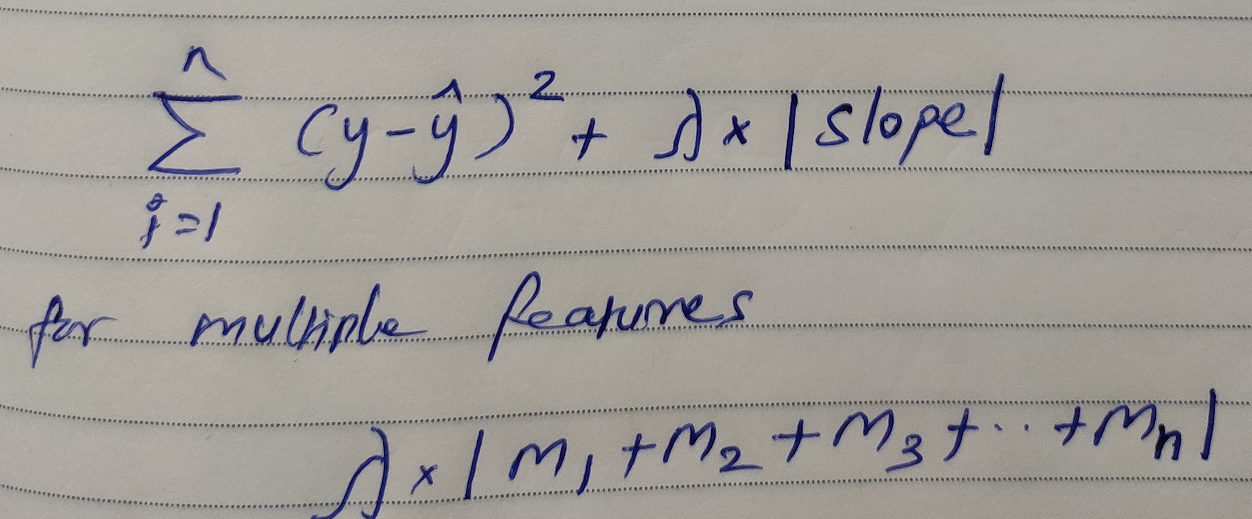 n
∑ (y-ŷ)² + λ × |slope|
i=1
for multiple features
λ × |m₁ + m₂ + m₃ + .. + mₙ|